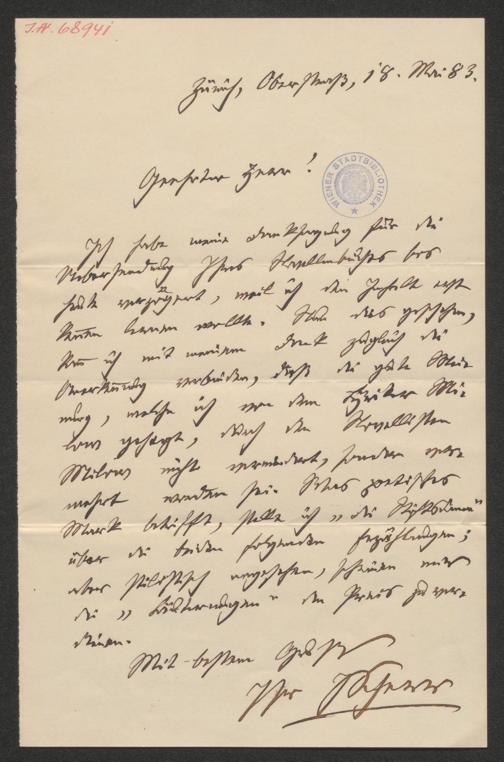 J.N. 68941
Zürich, Oberstraß, 18. Mai 83.
WIENER STADTBIBLIOTHEK
Geehrter Herr!
Ich habe meine Danksagung für die
Uebersendung Ihres Novellenbuches bis
heute verzögert, weil ich den Inhalt erst
kennen lernen wollte. Nun das geschehen,
kann ich mit meinem Dank zugleich die
Anerkennung verbinden, daß die gute Mei-
nung, welche ich von dem Lyriker Mi-
low gehegt, durch den Novellisten
Milow nicht vermindert, sondern ver-
mehrt worden sei. Was poetisches
Mark betrifft, stelle ich „die
über die beiden folgenden Erzählungen;
aber stilistisch angesehen, scheinen mir
die „ den Preis zu ver-
dienen.
Mit bestem Gruß
Ihr JScherr